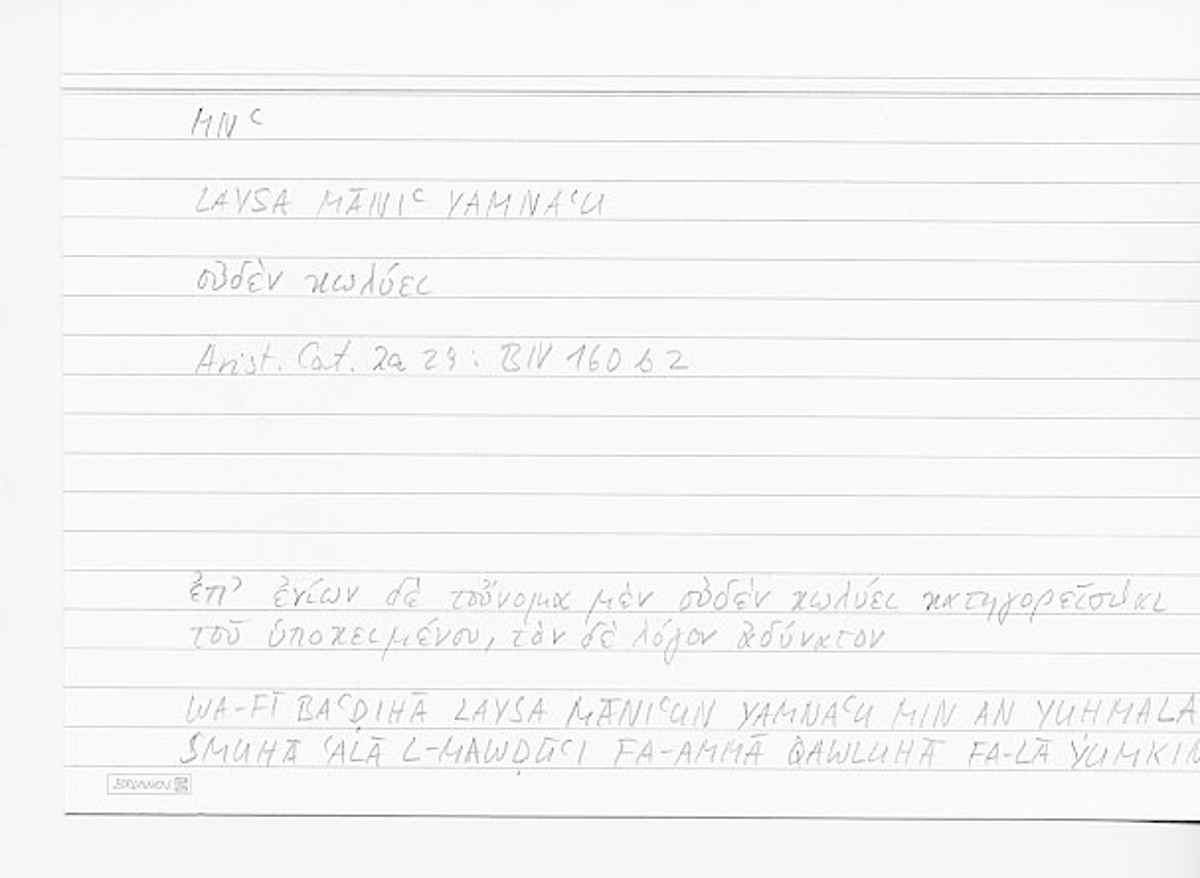 MNʿ
LAYSA MĀNIʿ YAMNAʿU
οὐδὲν κωλύει
Arist. Cat. 2a 29: BIV 160 b 2
ἐπ' ἐνίων δὲ τοὔνομα μὲν οὐδὲν κωλύει κατηγορεῖσθαι
τοῦ ὑποκειμένου, τὸν δὲ λόγον ἀδύνατον
WA-FĪ BAʿḌIHĀ LAYSA MĀNIʿUN YAMNAʿU MIN AN YUHMALA
SMUHĀ ʿALĀ L-MAWḌŪʿI FA-AMMĀ QAWLUHĀ FA-LĀ YUMKIN
BRUNNEN